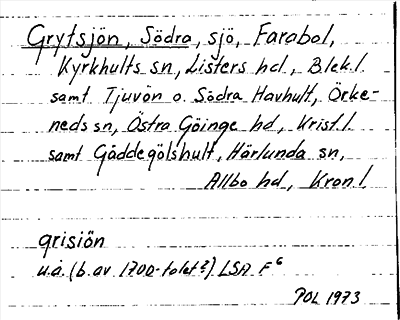 Grytsjön, Södra, sjö, Farabol,
Kyrkhults sn, Listers hd, Blek.l.
samt Tjuvön o. Södra Havhult, Örke-
neds sn, Östra Göinge hd, Krist.l.
samt Gäddegölshult, Härlunda sn,
Allbo hd, Kron.l.
grisiön
u.å. (b. av 1700-talet?) LSA F6
POL 1973